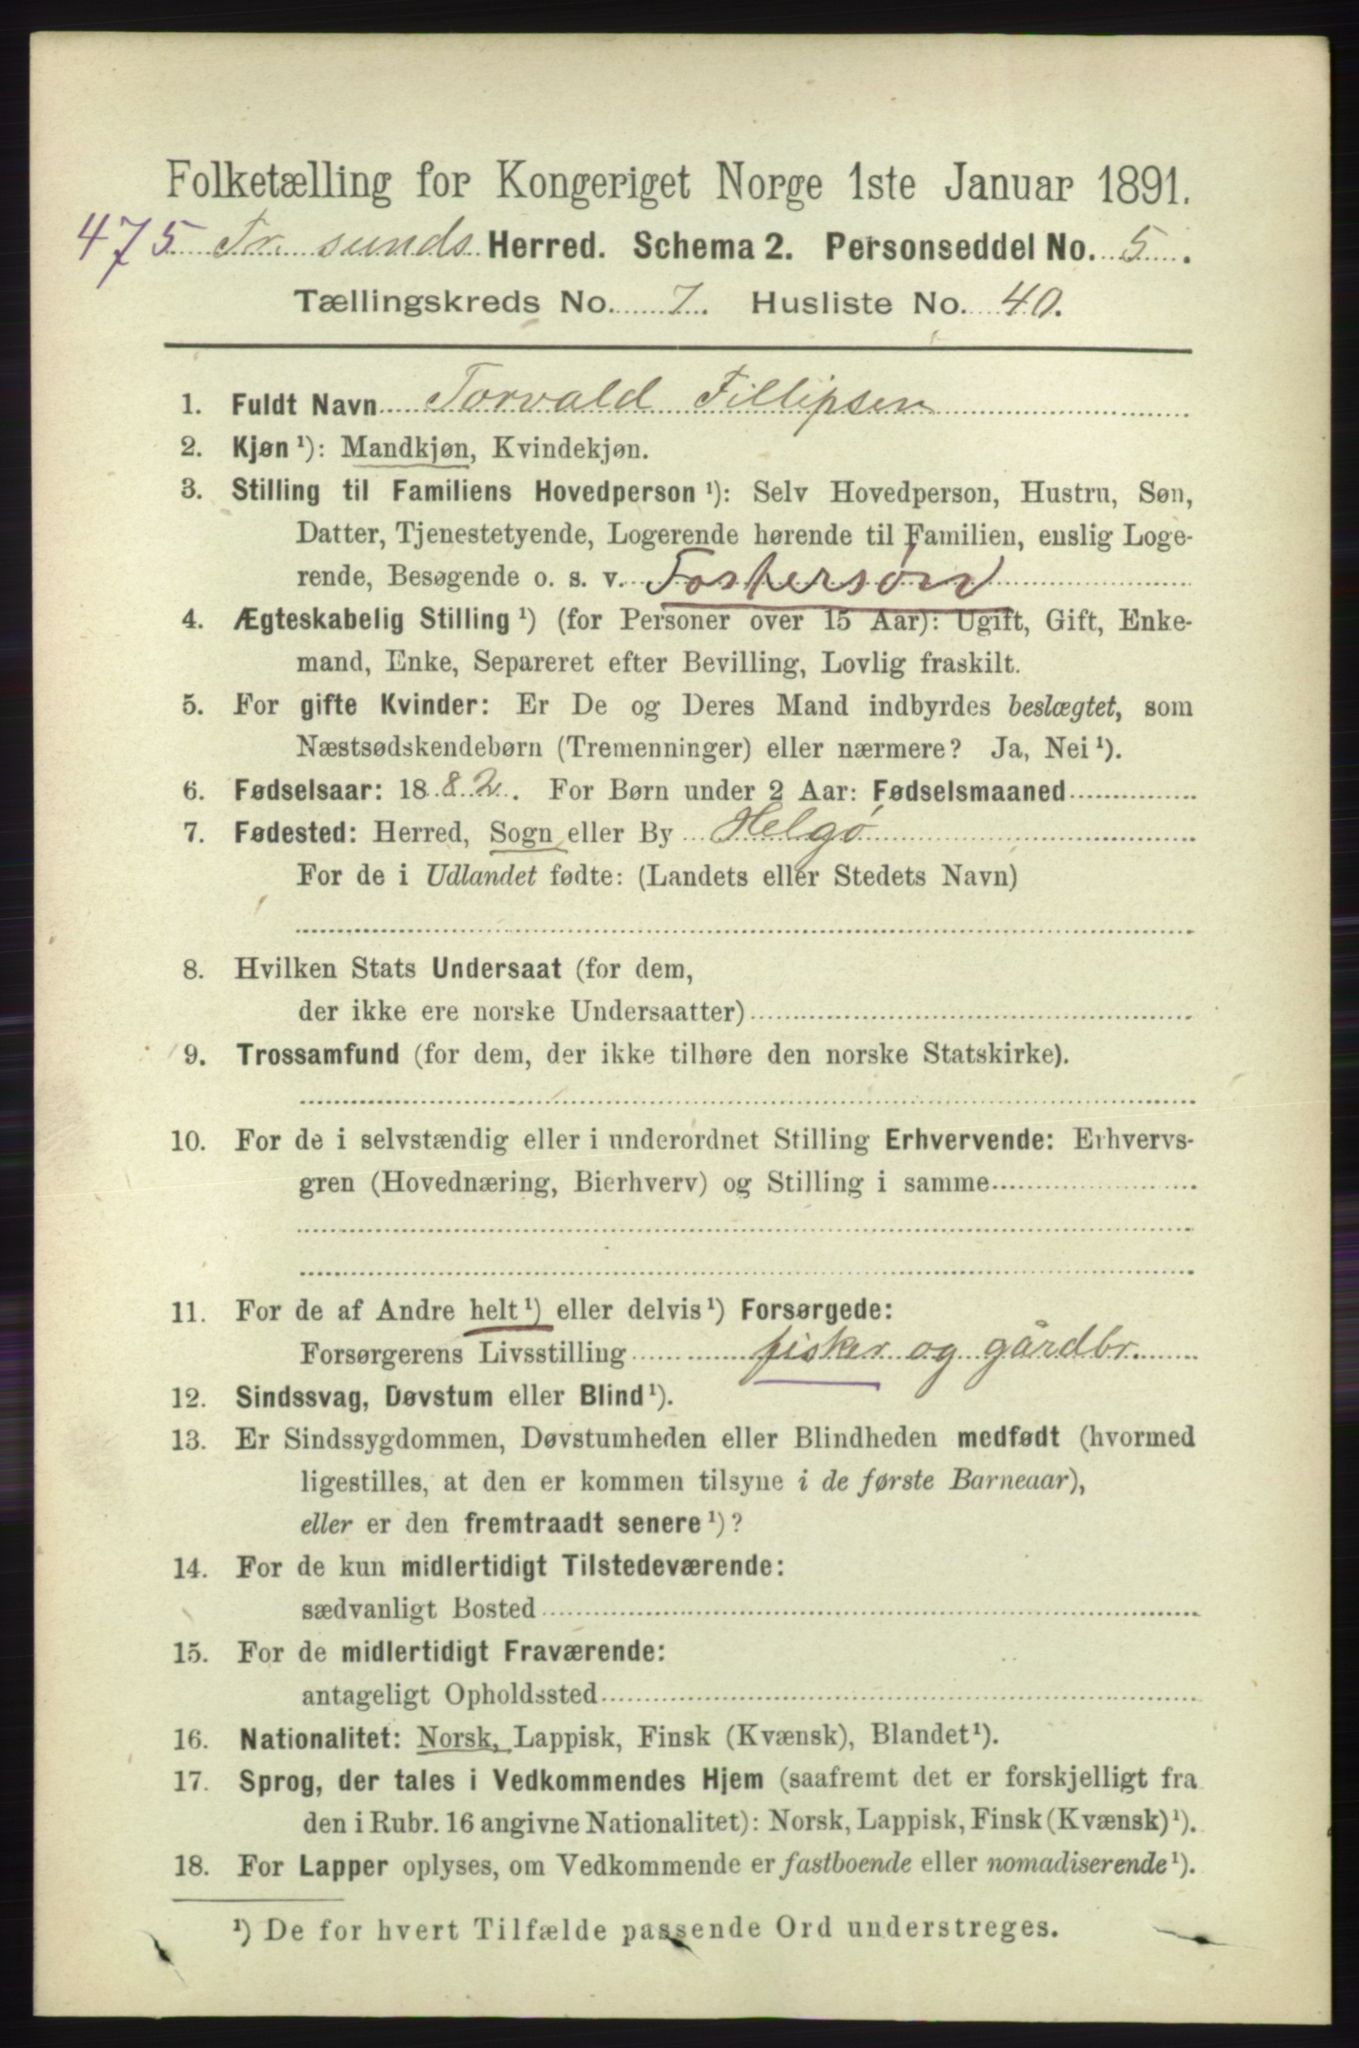 Folketælling for Kongeriget Norge 1ste Januar 1891.
475 Tr. sunds Herred. Schema 2. Personseddel No. 5.
Tællingskreds No. 7. Husliste No. 40.
1. Fuldt Navn Torvald Fillipsen
2. Kjøn ¹): Mandkjøn, Kvindekjøn.
3. Stilling til Familiens Hovedperson ¹): Selv Hovedperson, Hustru, Søn,
Datter, Tjenestetyende, Logerende hørende til Familien, enslig Loge-
rende, Besøgende o. s. v. Fostersøn
4. Ægteskabelig Stilling ¹) (for Personer over 15 Aar): Ugift, Gift, Enke-
mand, Enke, Separeret efter Bevilling, Lovlig fraskilt.
5. For gifte Kvinder: Er De og Deres Mand indbyrdes beslægtet, som
Næstsødskendebørn (Tremenninger) eller nærmere? Ja, Nei ¹).
6. Fødselsaar: 1882. For Børn under 2 Aar: Fødselsmaaned
7. Fødested: Herred, Sogn eller By Helgø
For de i Udlandet fødte: (Landets eller Stedets Navn)
8. Hvilken Stats Undersaat (for dem,
der ikke ere norske Undersaatter)
9. Trossamfund (for dem, der ikke tilhøre den norske Statskirke).
10. For de i selvstændig eller i underordnet Stilling Erhvervende: Erhvervs-
gren (Hovednæring, Bierhverv) og Stilling i samme
11. For de af Andre helt ¹) eller delvis ¹) Forsørgede:
Forsørgerens Livsstilling fisker og gårdbr.
12. Sindssvag, Døvstum eller Blind ¹).
13. Er Sindssygdommen, Døvstumheden eller Blindheden medfødt (hvormed
ligestilles, at den er kommen tilsyne i de første Barneaar),
eller er den fremtraadt senere ¹)?
14. For de kun midlertidigt Tilstedeværende:
sædvanligt Bosted
15. For de midlertidigt Fraværende:
antageligt Opholdssted
16. Nationalitet: Norsk, Lappisk, Finsk (Kvænsk), Blandet ¹).
17. Sprog, der tales i Vedkommendes Hjem (saafremt det er forskjelligt fra
den i Rubr. 16 angivne Nationalitet): Norsk, Lappisk, Finsk (Kvænsk) ¹).
18. For Lapper oplyses, om Vedkommende er fastboende eller nomadiserende ¹).
¹) De for hvert Tilfælde passende Ord understreges.